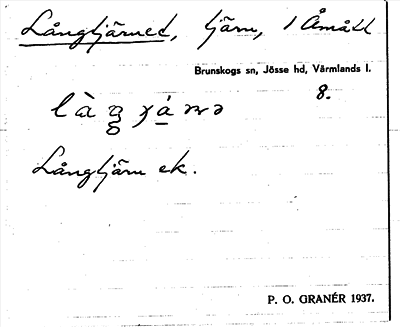 Långtjärnet, tjärn, 1 Åmått
Brunskogs sn, Jösse hd, Värmlands l.
8.
Långtjärn ek.
P. O. GRANÉR 1937.